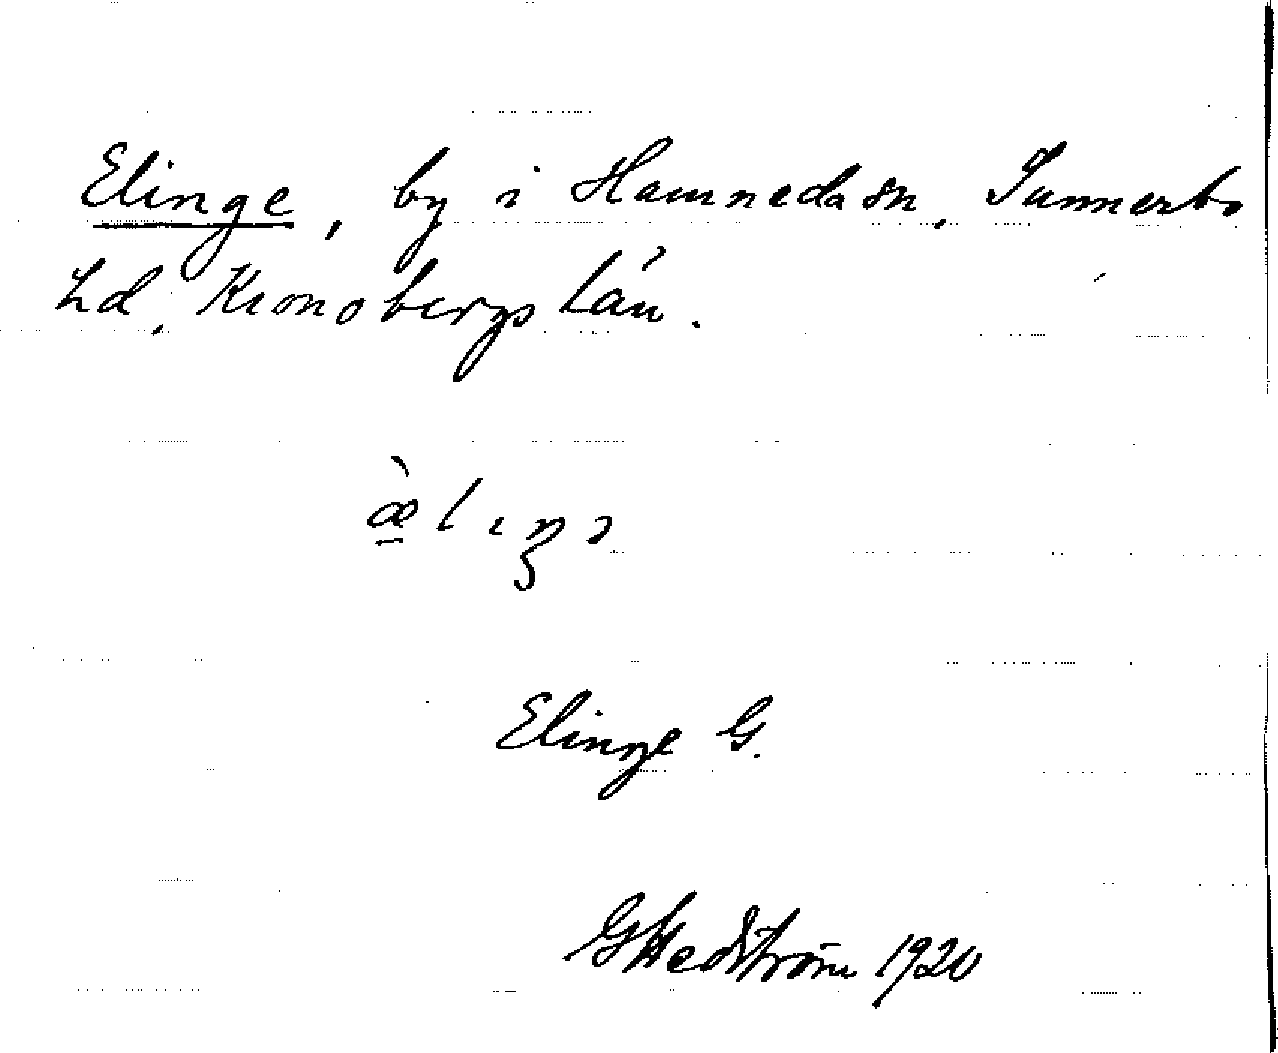 Elinge, by i Hamneda sn, Sunnerbo
hd, Kronobergs län.
æ̀lıŋə
Elinge G.
GHedström 1920